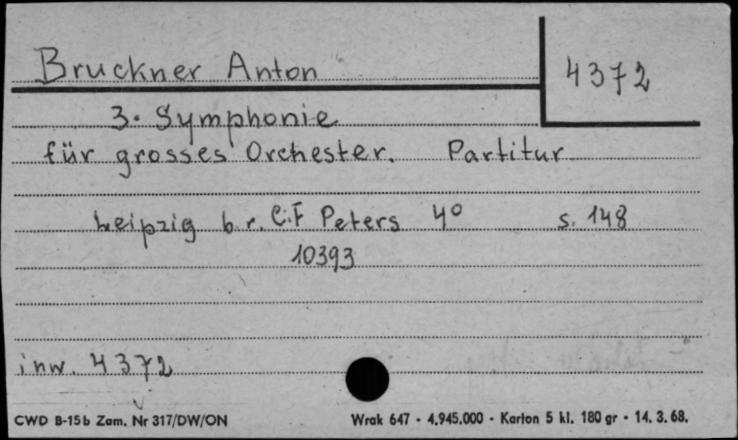 Bruckner Anton
4372
3. Symphonie
für grosses Orchester. Partitur
Leipzig b.r. C.F Peters 4° s. 148
10393
inw. 4372
CWD B-15b Zam. Nr 317/DW/ON
Wrak 647 • 4.945.000 • Karton 5 kl. 180 gr • 14. 3. 68.